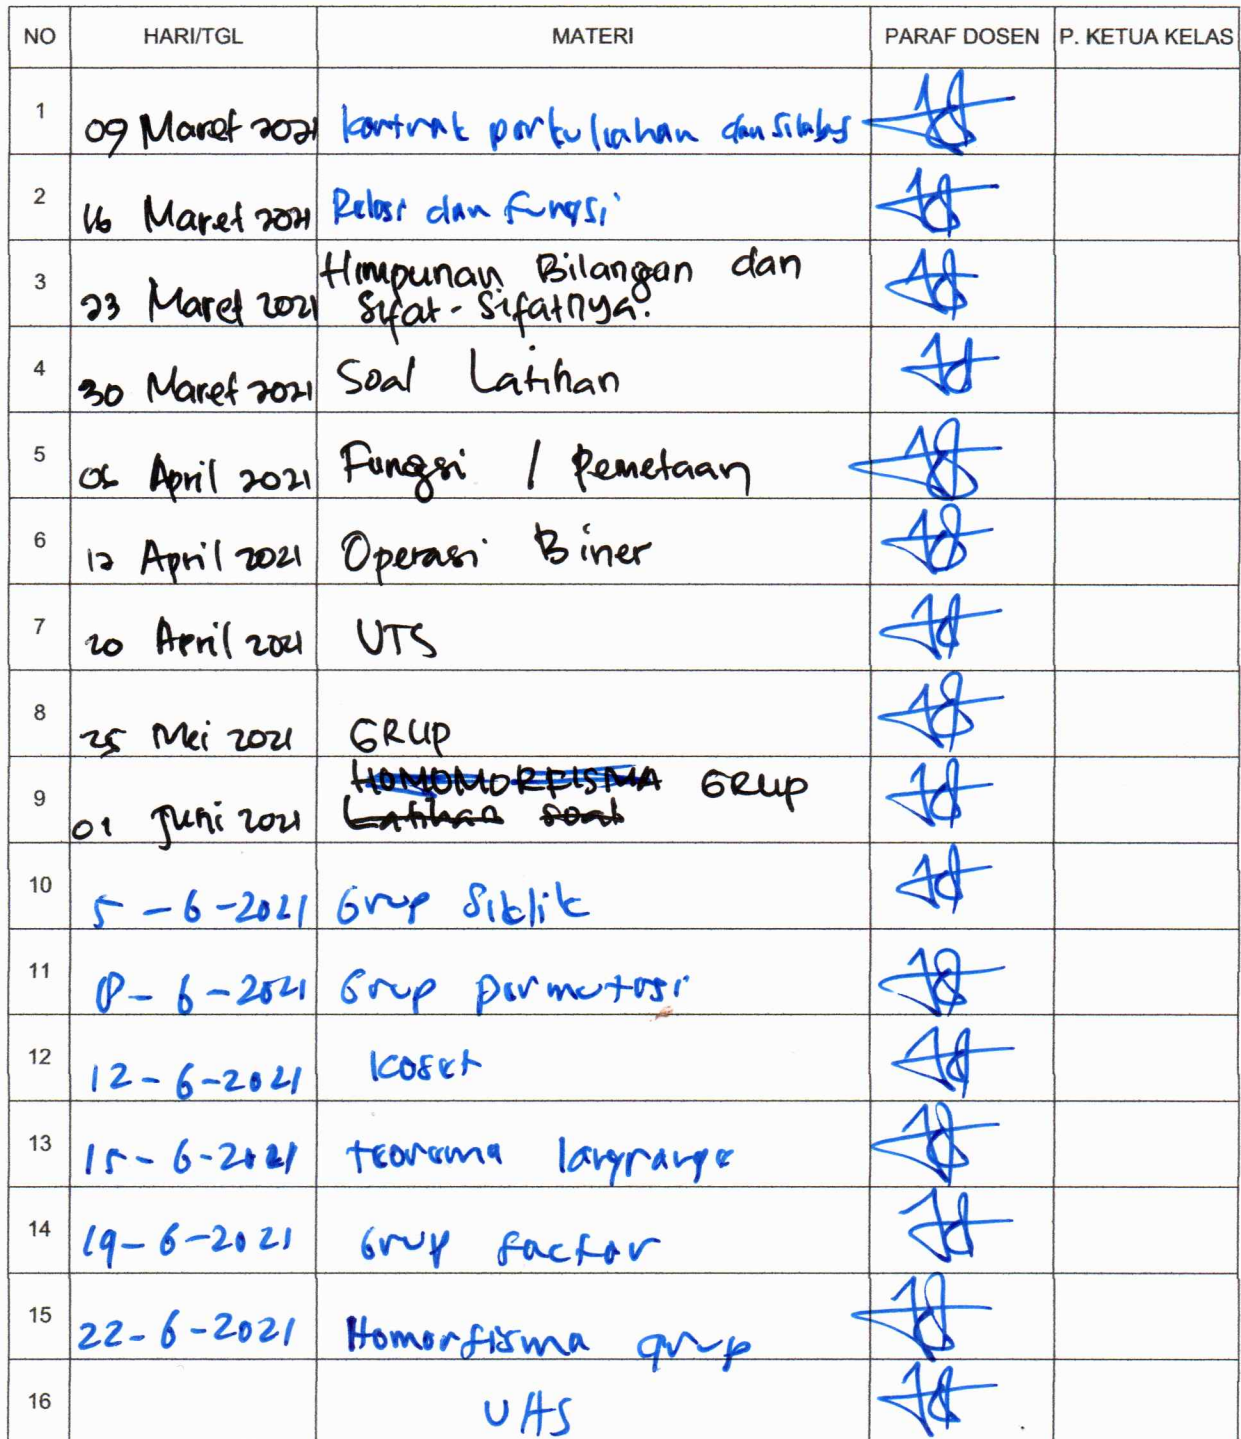 NO HARI/TGL MATERI PARAF DOSEN P. KETUA KELAS
1 09 Maret 2021 kontrak perkuliahan dan silabus
2 16 Maret 2021 Relasi dan fungsi
3 23 Maret 2021 Himpunan Bilangan dan
Sifat-Sifatnya.
4 30 Maret 2021 Soal Latihan
5 06 April 2021 Fungsi / Pemetaan
6 12 April 2021 Operasi Biner
7 20 April 2021 UTS
8 25 Mei 2021 GRUP
9 01 Juni 2021 HOMOMORFISMA GRUP
Latihan soal
10 5-6-2021 Grup Siklik
11 8-6-2021 Grup permutasi
12 12-6-2021 Koset
13 15-6-2021 teorema langrange
14 19-6-2021 Grup factor
15 22-6-2021 Homorfisma grup
16 UAS